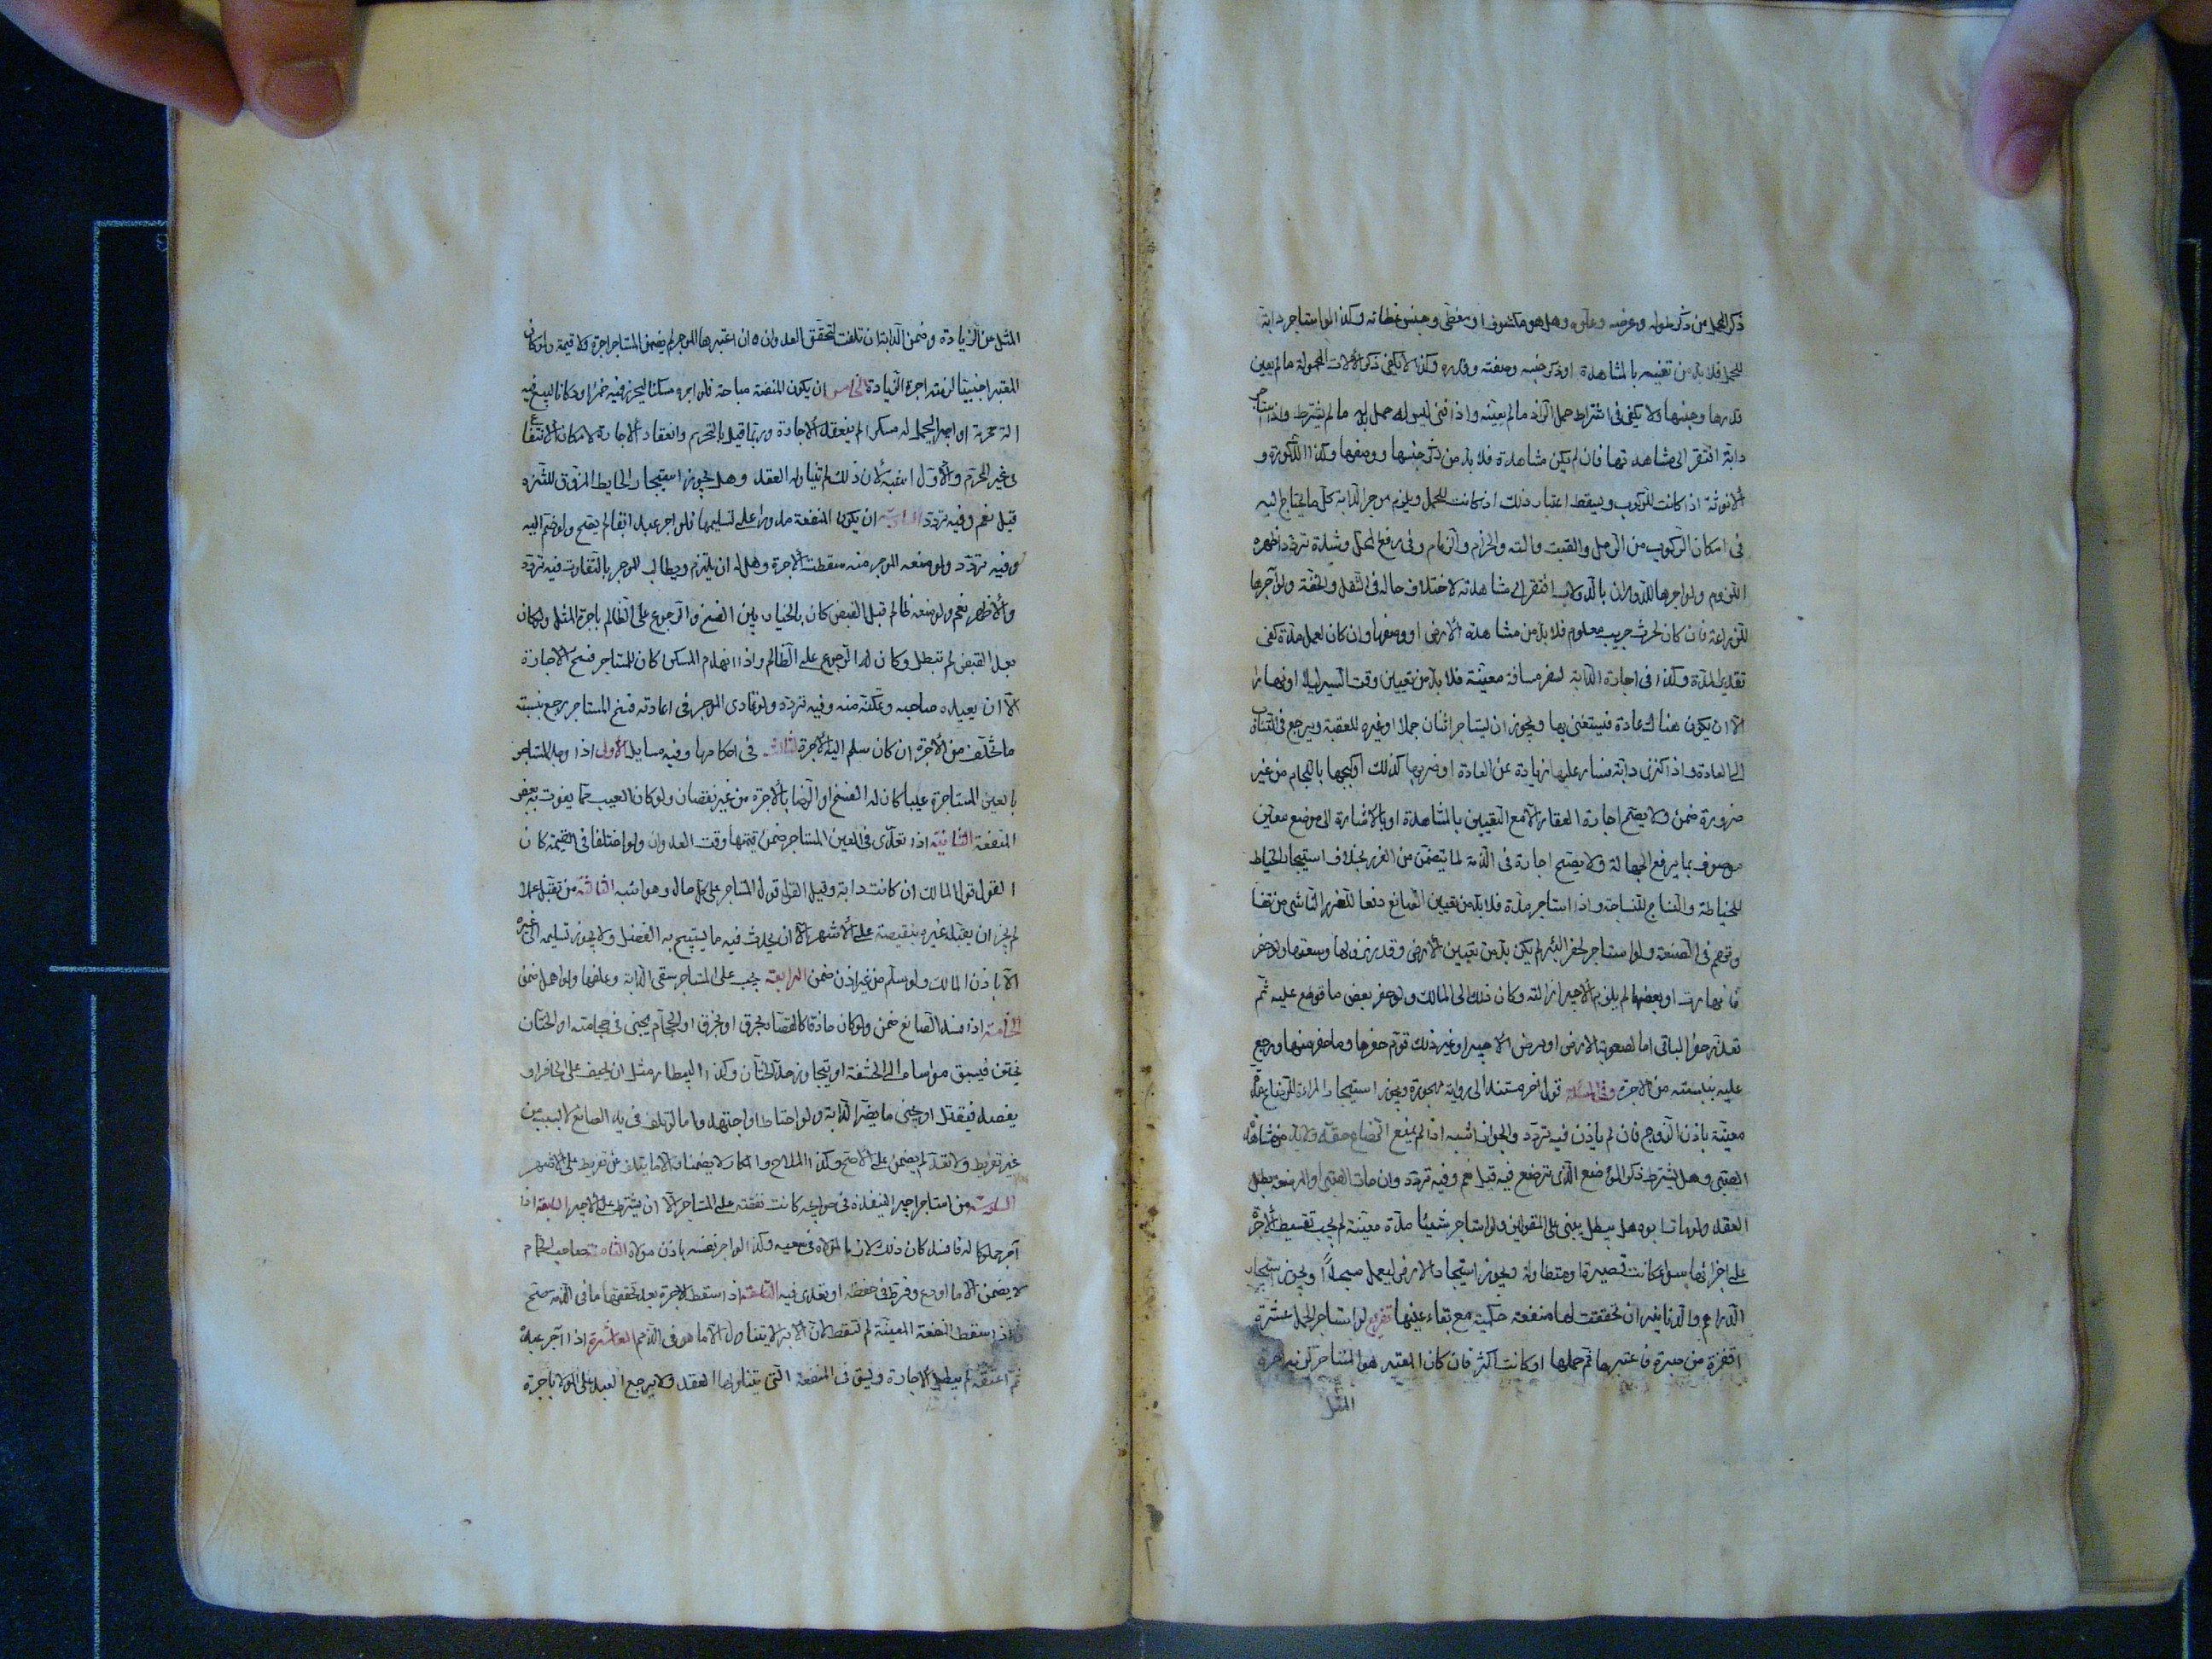 ذكر المحمل من ذكر طوله وعرضه وعلوه وهل هو مكشوف او مغطى وجنس غطائه وكذا لو استاجر دابة
للحمل فلا بد من تعيينه بالمشاهدة او ذكر جنسه وصفته وقدره وكذا لا يكفي ذكر الالات المحمولة ما لم يعين
قدرها وجنسها ولا يكفي في اشتراط حمل الزاد ما لم يعينه واذا فنى ليس له حمل بدله ما لم يشترط واذا استاجر
دابة افتقر الى مشاهدتها فان لم يكن مشاهدة فلا بد من ذكر جنسها ووصفها وكذا الذكورة و
الانوثة اذا كانت للركوب ويسقط اعتبار ذلك اذا كانت للحمل ويلزم موجر الدابة كل ما يحتاج اليه
في امكان الركوب من الرحل والقتب والته والحزام والزمام وفي رفع المحمل وشده تردد اظهره
اللزوم ولو اجرها للدوران بالدولاب افتقر الى مشاهدته لاختلاف حاله في الثقل والخفة ولو آجرها
للزراعة فان كان لحرث جريب معلوم فلا بد من مشاهدة الارض او وصفها وان كان لعمل مدة كفى
تقدير المدة وكذا في اجارة الدابة لسفر مسافة معينة فلا بد من تعيين وقت السير ليلا او نهارا
الا ان يكون هناك عادة فيستغنى بها ويجوز ان يستاجر اثنان جملا او غيره للعقبة ويرجع في التناوب
الى العادة واذا اكترى دابة فسار عليها زيادة عن العادة او ضربها كذلك او كبحها باللجام من غير
ضرورة ضمن ولا يصح اجارة العقار الا مع التعيين بالمشاهدة او بالاشارة الى موضع معين
موصوف بما يرفع الجهالة ولا يصح اجارة في الذمة لما يتضمن من الغرر بخلاف استيجار الخياط
للخياطة والنساج للنساجة واذا استاجر مدة فلا بد من تعيين الصانع دفعا للغرر الناشي من تفا
وتهم في الصنعة ولو استاجر لحفر البئر لم يكن بد من تعيين الارض وقدر نزولها وسعتها ولو حفر
فانهارت او بعضها لم يلزم الاجير ازالته وكان ذلك الى المالك ولو حفر بعض ما قوطع عليه ثم
تعذر حفر الباقي اما لصعوبة الارض او مرض الاجير او غير ذلك قوم حفرها وما حفر منها ورجع
عليه بنسبته من الاجرة وفي المسئلة قول اخر مستند الى رواية مهجورة ويجوز استيجار المراة للرضاع مدة
معينة باذن الزوج فان لم ياذن فيه تردد والجواز اشبه اذا لم يمنع الرضاع حقه ولا بد من مشاهدة
الصبي وهل يشترط ذكر الموضع الذي ترضع فيه قيل نعم وفيه تردد وان مات الصبي او المرضعة بطل
العقد ولو مات ابوه هل يبطل يبنى على القولين ولو استاجر شيئا مدة معينة لم يجب تقسيط الاجرة
على اجزائها سواء كانت قصيرة او متطاولة ويجوز استيجار الارض ليعمل مسجدا ويجوز استيجار
الدراهم والدنانير ان تحققت لها منفعة حكمية مع بقاء عينها تفريع لو استاجر لحمل عشرة
اقفزة من صبرة فاعتبرها ثم حملها او كانت اكثر فان كان المعتبر هو المستاجر لزمه اجرة
المثل
المثل عن الزيادة وضمن الدابة ان تلفت لتحقق العدوان وان اعتبرها الموجر لم يضمن المستاجر اجرة ولا قيمة ولو كان
المعتبر اجنبيا لزمته اجرة الزيادة الخامس ان يكون المنفعة مباحة فلو اجره مسكنا ليحرز فيه خمرا او دكانا ليبيع فيه
الة محرمة او اجيرا ليحمل له مسكرا لم ينعقد الاجارة وربما قيل بالتحريم وانعقاد الاجارة لامكان الانتفاع
في غير المحرم والاول اشبه لان ذلك لم تيناوله العقد وهل يجوز استيجار الحايط المزوق للتنزه
قيل نعم وفيه تردد السادس ان يكون المنفعة مقدورا على تسليمها فلو اجر عبدا ابقا لم يصح ولو ضم اليه
وفيه تردد ولو منعه الموجر منه سقطت الاجرة وهل له ان يلتزم ويطالب الموجر بالتفاوت فيه تردد
والاظهر نعم ولو منعه ظالم قبل القبض كان بالخيار بين الفسخ والرجوع على الظالم باجرة المثل ولو كان
بعد القبض لم تبطل وكان له الرجوع على الظالم واذا انهدم المسكن كان للمستاجر فسخ الاجارة
الا ان يعيده صاحبه ويمكنه منه وفيه تردد ولو تمادى الموجر في اعادته فسخ المستاجر رجع بنسبته
ما تخلف من الاجرة ان كان سلم اليه الاجرة الثالث في احكامها وفيه مسايل الاولى اذا وجد المستاجر
بالعين المستاجرة عيبا كان له الفسخ او الرضا بالاجرة من غير نقصان ولو كان العيب مما يفوت به بعض
المنفعة الثانية اذا تعدى في العين المستاجرة ضمن قيمتها وقت العدوان ولو اختلفا في القيمة كان
القول قول المالك ان كانت دابة وقيل القول قول المستاجر على كل حال وهو اشبه الثالثة من تقبل عملا
لم يجز ان يقبله غيره بنقيصة على الاشهر الا ان يحدث فيه ما يستبيح به الفضل ولا يجوز تسليمه الى غيره
الا باذن المالك ولو سلم من غير اذن ضمن الرابعة يجب على المستاجر سقى الدابة وعلفها ولو اهمل ضمن
الخامسة اذا افسد الصانع ضمن ولو كان حاذقا كالقصار يحرق او يخرق او الحجام يجنى في حجامته او الختان
يختن فيسبق موساه الى الحشفة او يتجاوز حد الختان وكذا البيطار مثل ان يحيف على الحافر او
يفصد فيقتل او يجنى ما يضر الدابة ولو احتاط او اجتهد واما لو تلف في يد الصانع لا بسببه من
غير تفريط ولا تعد لم يضمن على الاصح وكذا الملاح والمكارى لا يضمنان الا ما يتلف عن تفريط على الاشهر
السادسة من استاجر اجيرا لينفذه في حوايجه كانت نفقته على المستاجر الا ان يشترط على الاجير السابعة اذا
آجر مملوكا له فافسد كان ذلك لازما لمولاه في سعيه وكذا لو اجر نفسه باذن مولاه الثامنة صاحب الحمام
لا يضمن الا ما اودع وفرط في حفظه او تعدى فيه التاسعة اذا اسقط الاجرة بعد تحققها ما في الذمة صح
واذا اسقط المنفعة المعينة لم تسقط لان الابراء لا يتناول الا ما هو في الذمم العاشرة اذا اآجر عبده
ثم اعتقه لم يبطل الاجارة ويستوفى المنفعة التي يتناولها العقد ولا يرجع العبد على المولا باجرة